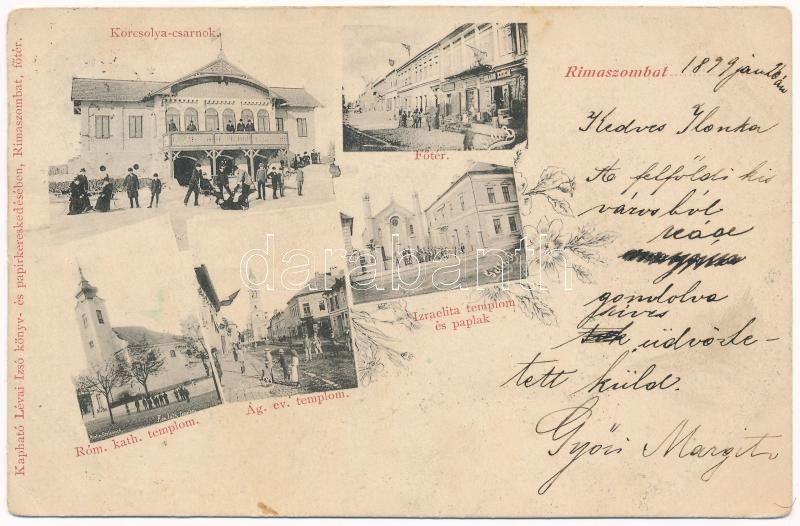 Kapható Lévai Izsó könyv- és papirkereskedésében, Rimaszombat, főtér.
Korcsolya-csarnok.
Főtér.
Izraelita templom
és paplak
Róm. kath. templom.
Ág. ev. templom.
darabanth.com
Rimaszombat 1899 jan
Kedves Ilonka
A felföldi kis
városból
reád
gondolva
szives
üdvözle-
tett küld.
Győri Margit